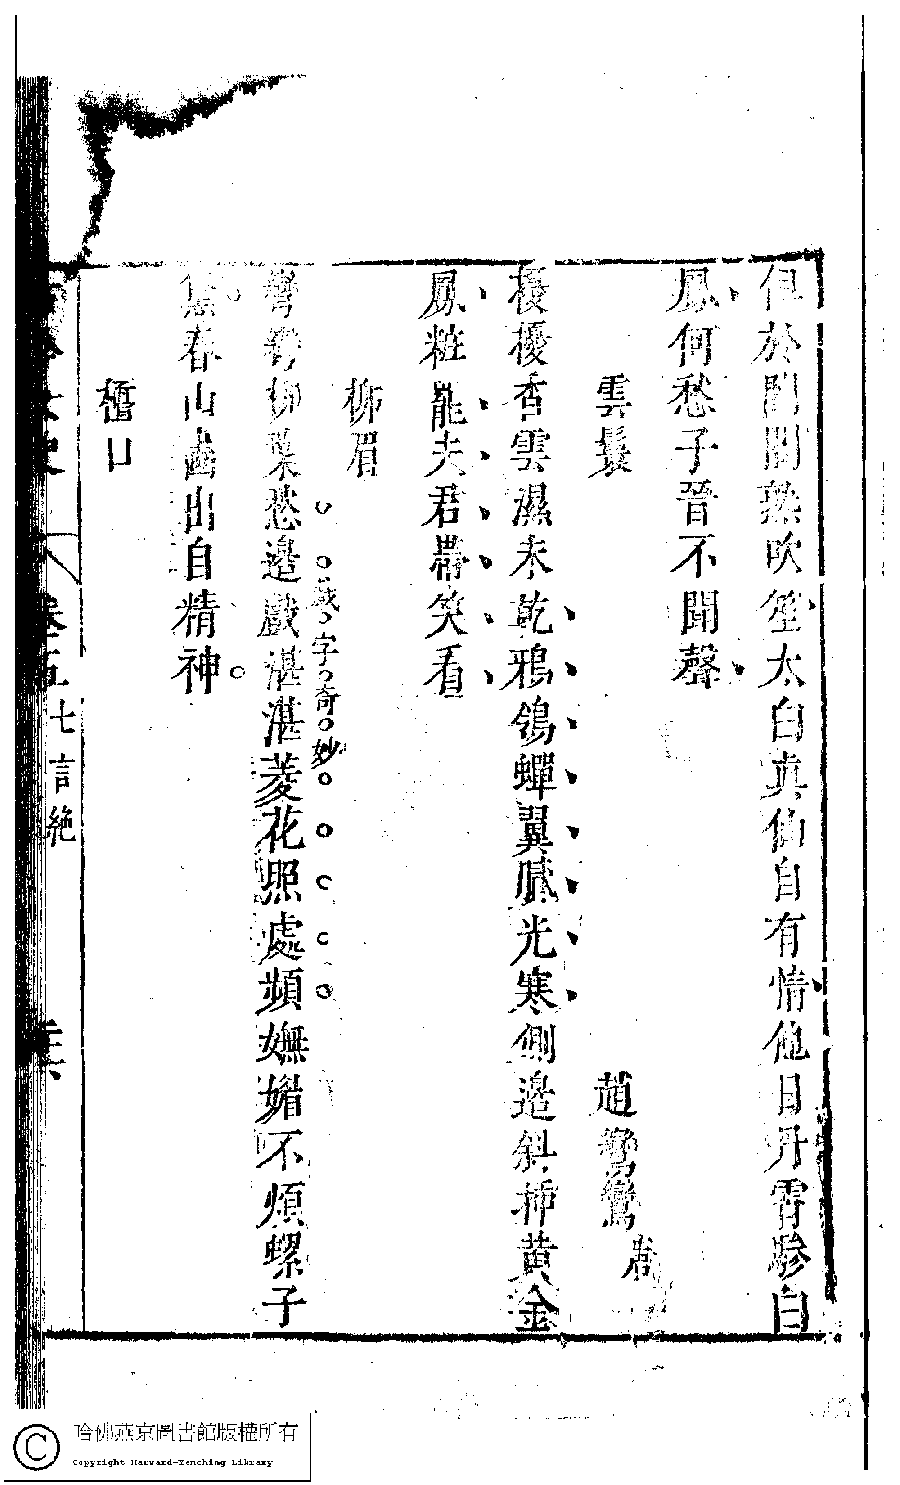 但於閶闔熟吹笙太白真仙自有情他日丹霄驂白
鳳何愁子晉不聞聲
雲鬟
趙鸞鸞 元
擾擾香雲濕未乾鴉翎蟬翼膩光寒側邊斜挿黄金
鳳粧罷夫君帶笑看
柳眉
彎彎柳葉愁邊戲湛湛菱花照處頻嫵媚不煩螺子
戲字奇妙
黛春山畵出自精神
檀口
卷五
七言絶
哈佛燕京圖書館版權所有
Copyright Harvard-Yenching Library